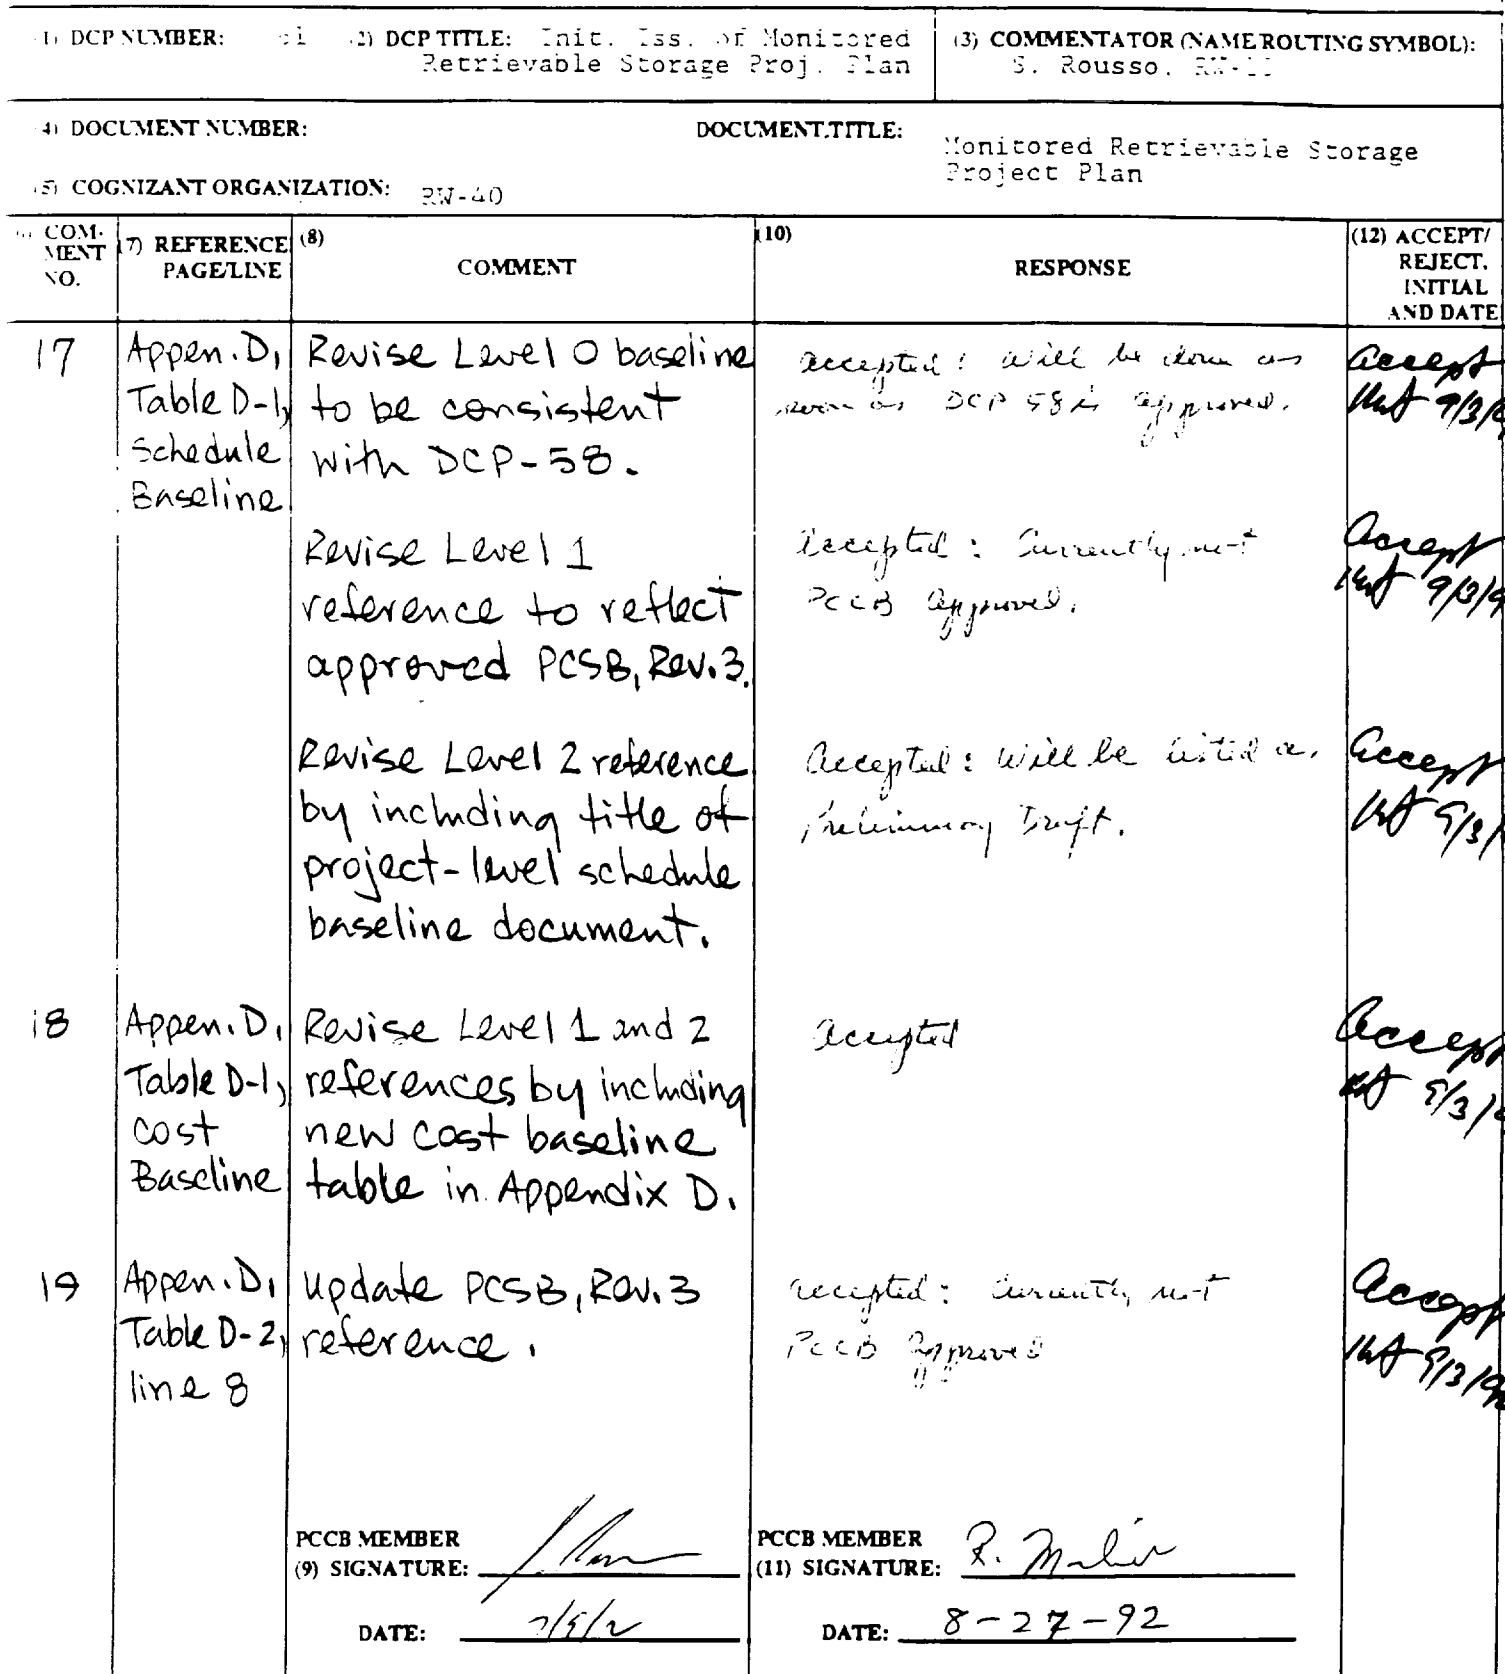 (1) DCP NUMBER: (2) DCP TITLE: Init. Iss. of Monitored
Retrievable Storage Proj. Plan
(3) COMMENTATOR (NAME ROUTING SYMBOL):
S. Rousso.
(4) DOCUMENT NUMBER: DOCUMENT.TITLE:
Monitored Retrievable Storage
Project Plan
(5) COGNIZANT ORGANIZATION: RW-40
COM-
MENT
NO.
(7) REFERENCE
PAGE/LINE
(8)
COMMENT
(10)
RESPONSE
(12) ACCEPT/
REJECT,
INITIAL
AND DATE
17
Appen. D,
Table D-1,
Schedule
Baseline
Revise Level 0 baseline
to be consistent
with DCP-58.
accepted: will be done as
soon as DCP 58 is approved.
accept
9/3/
Revise Level 1
reference to reflect
approved PCSB, Rev. 3.
accepted: Currently not
PCCB approved.
accept
9/3/9
Revise Level 2 reference
by including title of
project-level schedule
baseline document.
accepted: Will be listed as
Preliminary Draft.
accept
9/3/
18
Appen. D,
Table D-1,
Cost
Baseline
Revise Level 1 and 2
references by including
new cost baseline
table in Appendix D.
accepted
accept
9/3/
19
Appen. D,
Table D-2,
line 8
Update PCSB, Rev. 3
reference.
accepted: Currently not
PCCB Approved
accept
9/3/9
PCCB MEMBER
(9) SIGNATURE:
DATE:
PCCB MEMBER
(11) SIGNATURE: R.
DATE: 8-27-92